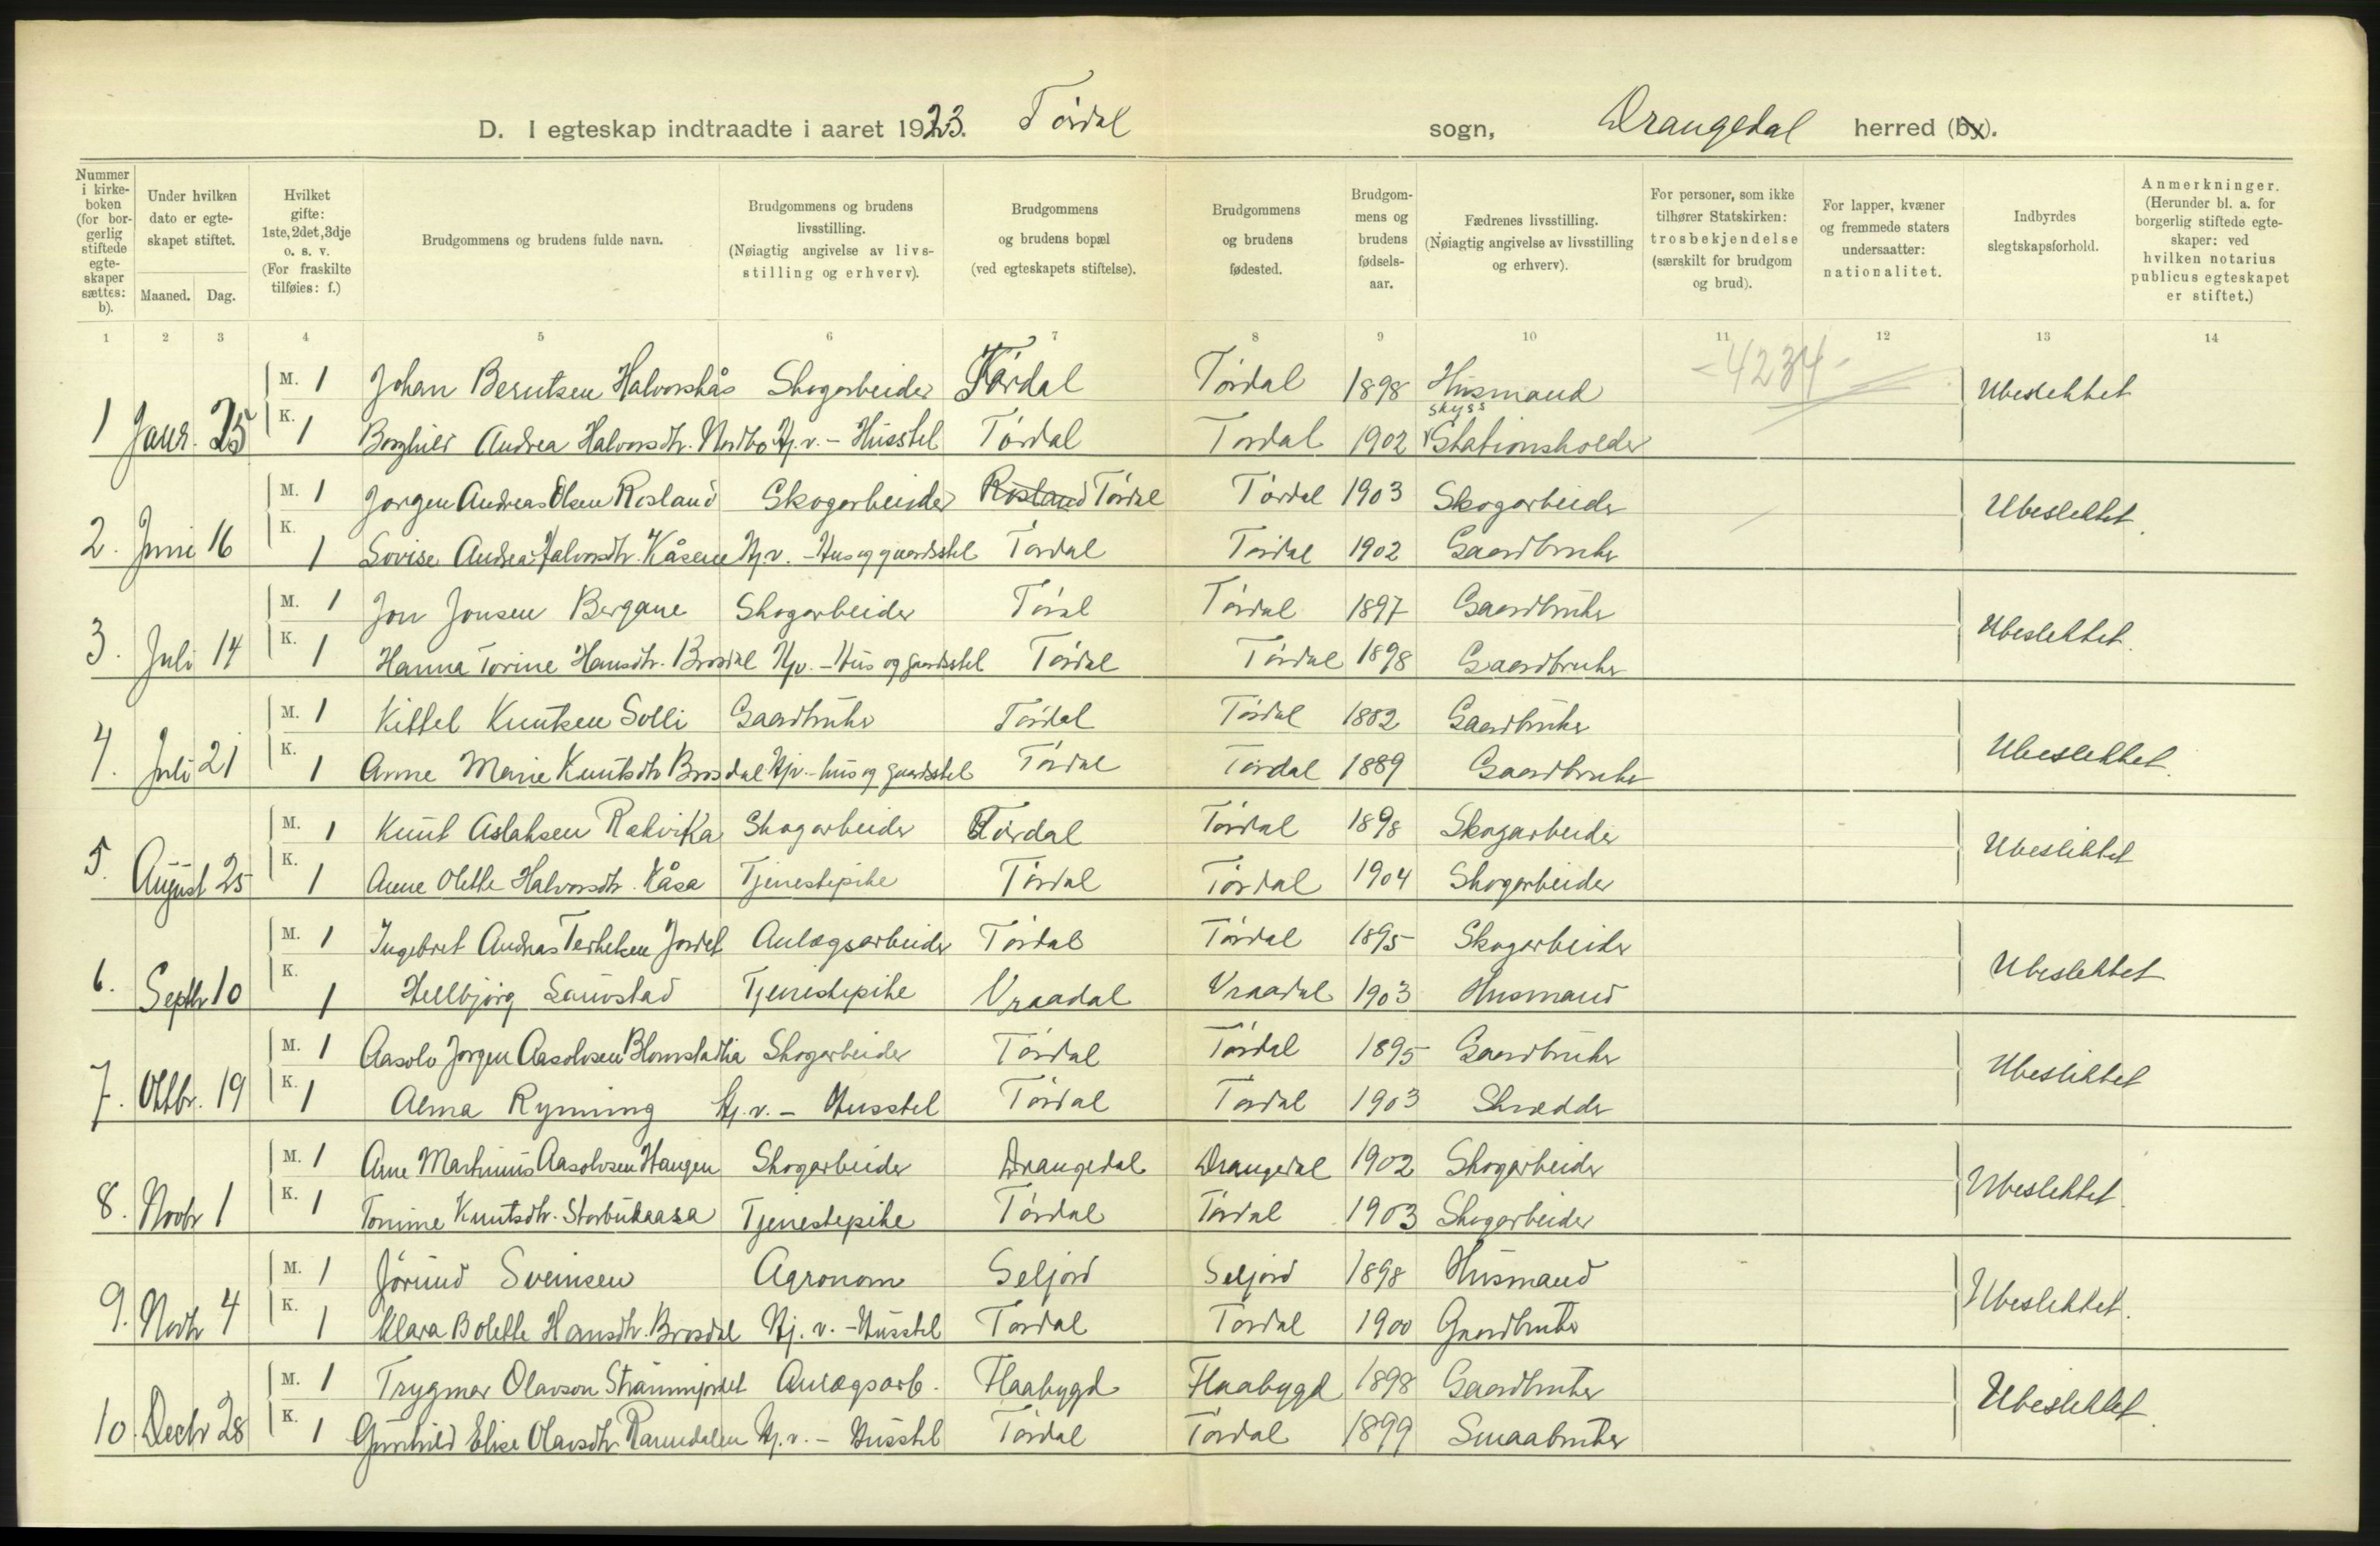 D. I egteskap indtraadte i aaret 1923. Tørdal sogn, Drangedal herred (by).
Nummer i kirkeboken (for borgerlig stiftede egteskaper sættes: b). Under hvilken dato er egteskapet stiftet. Maaned. Dag. Hvilket gifte: 1ste, 2det, 3dje o. s. v. (For fraskilte tilføies: f.) Brudgommens og brudens fulde navn. Brudgommens og brudens livsstilling. (Nøiagtig angivelse av livsstilling og erhverv). Brudgommens og brudens bopæl (ved egteskapets stiftelse). Brudgommens og brudens fødested. Brudgommens og brudens fødselsaar. Fædrenes livsstilling. (Nøiagtig angivelse av livsstilling og erhverv). For personer, som ikke tilhører Statskirken: trosbekjendelse (særskilt for brudgom og brud). For lapper, kvæner og fremmede staters undersaatter: nationalitet. Indbyrdes slegtskapsforhold. Anmerkninger. (Herunder bl. a. for borgerlig stiftede egteskaper: ved hvilken notarius publicus egteskapet er stiftet.)
1 2 3 4 5 6 7 8 9 10 11 12 13 14
M. 1 Johan Berntsen Halvorskås Skogarbeider Tørdal Tørdal 1898 Husmand -4234- Ubeslektet
1 Janr. 25 K. 1 Borghild Andrea Halvorsdtr. Nordbø Hj.v. - Husstel Tørdal Tørdal 1902 skyss Stationsholder
M. 1 Jørgen Andreas Olsen Rosland Skogarbeider Rosland Tørdal Tørdal 1903 Skogarbeider Ubeslektet.
2. Juni 16 K. 1 Lovise Andrea Halvorsdtr. Kåsene Hj.v. - Hus og gaardsstel Tørdal Tørdal 1902 Gaardbruker
M. 1 Jon Jonsen Bergane Skogarbeider Tørdal 1897 Gaardbruker Ubeslektet.
3. Juli 14 K. 1 Hanna Torine Hansdtr. Brosdal Hjv. - Hus og gaardsstel Tørdal Tørdal 1898 Gaardbruker
M. 1 Kittel Knutsen Solli Gaardbruker Tørdal Tørdal 1882 Gaardbruker Ubeslektet.
4. Juli 21 K. 1 Anne Marie Knutsdtr Brosdal Hjv. - hus og gaardsstel Tørdal Tørdal 1889 Gaardbruker
M. 1 Knut Aslaksen Rakvika Skogarbeider Tørdal Tørdal 1898 Skogarbeider Ubeslektet
5. August 25 K. 1 Anne Olette Halvorsdtr. Kåsa Tjenestepike Tørdal Tørdal 1904 Skogarbeider
M. 1 Ingebret Andreas Terkelsen Jordet Anlægsarbeider Tørdal Tørdal 1895 Skogarbeider Ubeslektet
6. Septbr 10 K. 1 Helbjørg Tjenestepike Vraadal Vraadal 1903 Husmand
M. 1 Aasolv Jørgen Aasolvsen Blomstadlia Skogarbeider Tørdal Tørdal 1895 Gaardbruker Ubeslektet
7. Oktbr. 19 K. 1 Alma Rynning Hj.v. - Husstel Tørdal Tørdal 1903 Skrædder
M. 1 Arne Martinius Aasolvsen Haugen Skogarbeider Drangedal Drangedal 1902 Skogarbeider Ubeslektet.
8. Novbr 1 K. 1 Tomine Knutsdtr. Storbukaasa Tjenestepike Tørdal Tørdal 1903 Skogarbeider
M. 1 Jørund Sveinsen Agronom Seljord Seljord 1898 Husmand Ubeslektet.
9. Novbr 4 K. 1 Klara Bolette Hansdtr. Brosdal Hj. v. - Husstel Tørdal Tørdal 1900 Gaardbruker
M. 1 Trygmar Olavson Anlægsarb. Flaabygd Flaabygd 1898 Gaardbruker Ubeslektet.
10. Decbr 28 K. 1 Gunhild Elise Olavsdtr. Hj.v. - Husstel Tørdal Tørdal 1899 Smaabruker